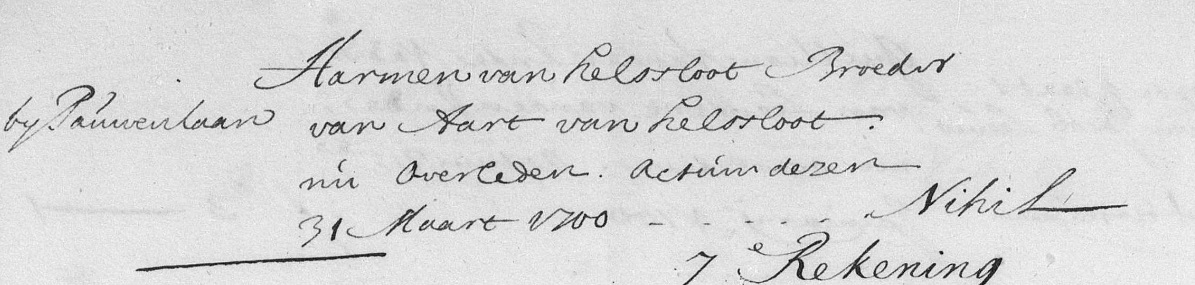 Harmen van helssloot Broeder
by Pauwenlaan
van Aart van helssloot.
nu overleden. Actum dezen
31 Maart 1700 - - - - - Nihil
7e Rekening